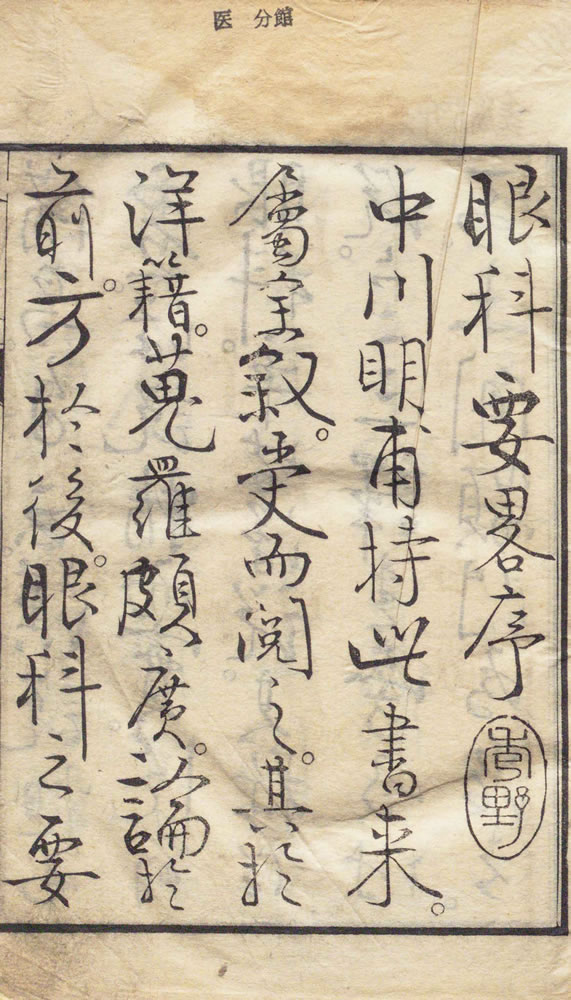 医 分館
眼科要畧序
野
中川明甫持此書来。
屬余叙。受而閲之。其於
洋籍。蒐羅頗廣。論於
前。方於後。眼科之要